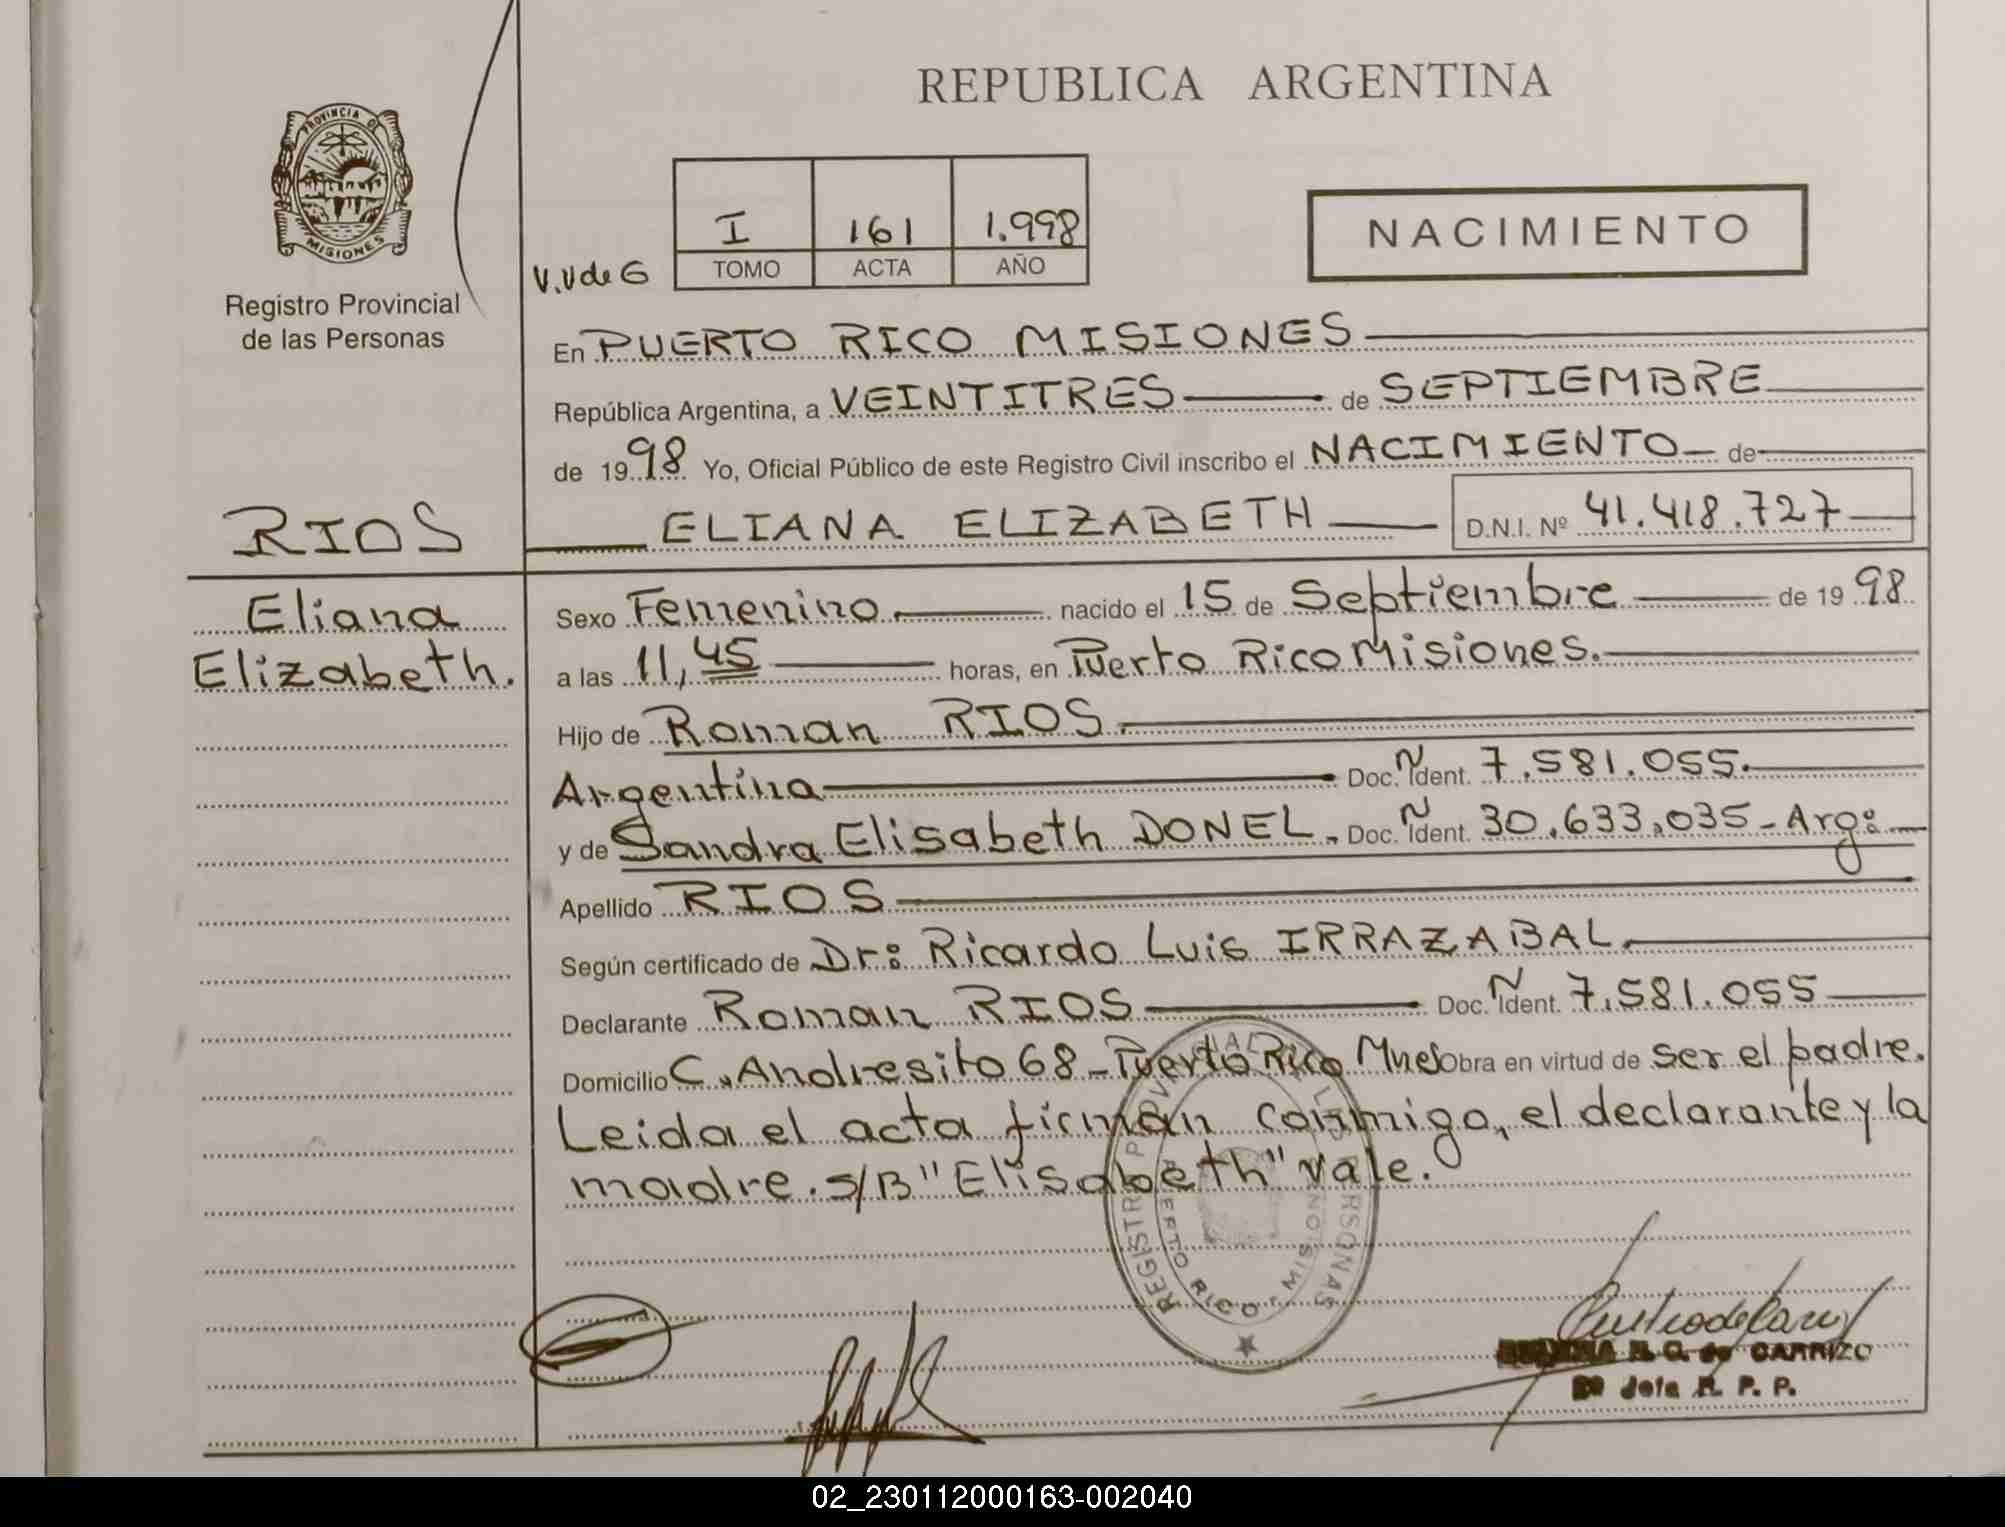 REPUBLICA ARGENTINA
PROVINCIA DE
MISIONES
Registro Provincial
de las Personas
V.V de G
I 161 1.998
TOMO ACTA AÑO
NACIMIENTO
En PUERTO RICO MISIONES
República Argentina, a VEINTITRES de SEPTIEMBRE
de 1998 Yo, Oficial Público de este Registro Civil inscribo el NACIMIENTO de
RIOS
ELIANA ELIZABETH D.N.I. Nº 41.418.727
Eliana
Elizabeth.
Sexo Femenino. nacido el 15 de Septiembre de 1998
a las 11,45 horas, en Puerto Rico Misiones.
Hijo de Roman RIOS.
Argentina Doc. Ñ Ident. 7.581.055.
y de Sandra Elisabeth DONEL. Doc. Ñ Ident. 30.633.035- Arg:
Apellido RIOS
Según certificado de Dr: Ricardo Luis IRRAZABAL.
Declarante Roman RIOS Doc. Ñ Ident. 7.581.055
Domicilio C. Andresito 68 - Puerto Rico Mnes Obra en virtud de ser el padre.
Leida el acta firman conmigo, el declarante y la
madre. S/B "Elisabeth" vale.
REGISTRO PROVINCIAL DE LAS PERSONAS
PUERTO RICO - MISIONES
de CARRIZO
2º Jefa R. P. P.
02_230112000163-002040